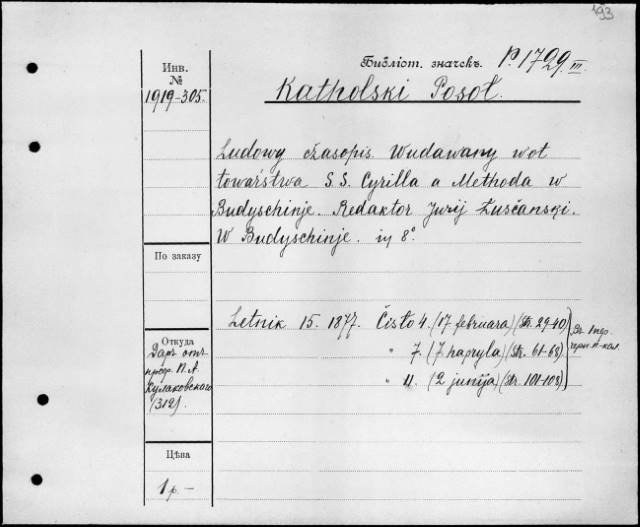 493
Библіот. значекъ. P. 1729. III.
Инв.
№
1919-305.
Katholski Posoł.
Ludowy časopis. Wudawany wot
towaŕstwa S.S. Cyrilla a Methoda w
Budyschinje. Redaktor Jurij Łusčanski.
W Budyschinje. in 8°.
По заказу
Letnik 15. 1877. Čisło 4. (17 februara) (Str. 29-40)
" 7. (7 hapryla) (Str. 61-68)
" 11. (2 junija) (Str. 101-108)
Откуда
Даръ отъ
проф. П. А.
Кулаковского
(312).
Цѣна
1 р.-